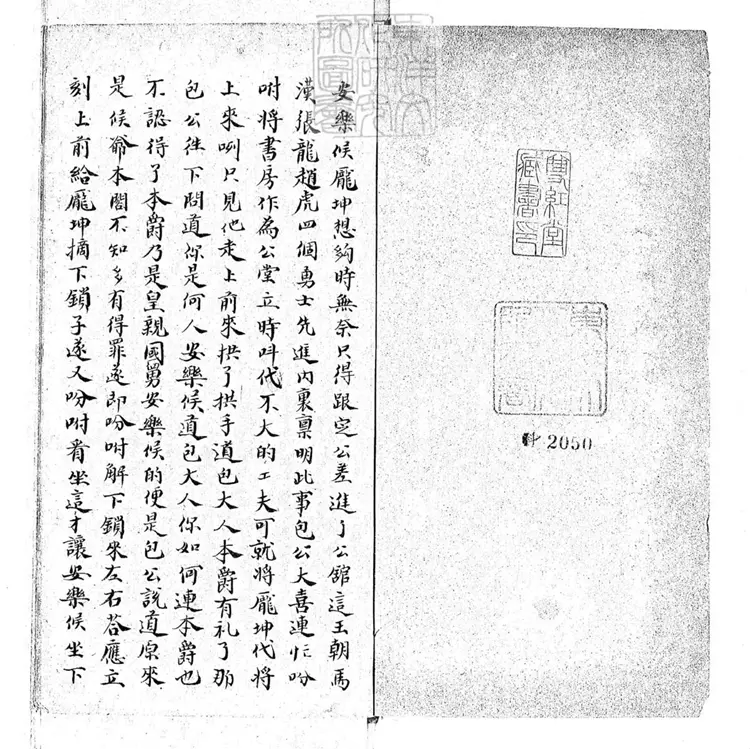 雙紅堂
藏書印
2050
安樂候龐坤想夠時無奈只得跟定公差進了公舘這王朝馬
漢張龍趙虎四個勇士先進內裏禀明此事包公大喜連忙吩
咐將書房作為公堂立時呌代不大的工夫可就將龐坤代將
上來咧只見他走上前來拱了拱手道包大人本爵有礼了那
包公往下問道你是何人安樂候道包大人你如何連本爵也
不認得了本爵乃是皇親國舅安樂候的便是包公說道原來
是候爺本閣不知多有得罪遂即吩咐解下鎖來左右荅應立
刻上前給龐坤摘下鎖子遂又吩咐看坐這才讓安樂候坐下